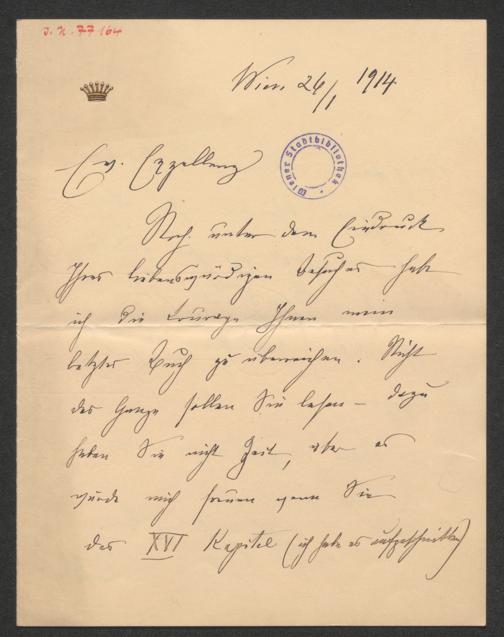 J. N. 77164
Wien 26/1 1914
Wiener Stadtbibliothek
Ew. Exzellenz
Noch unter dem Eindruck
Ihres liebenswürdigen Besuches habe
ich die Courage Ihnen mein
letztes Buch zu überreichen. Nicht
das Ganze sollen Sie lesen – dazu
haben Sie nicht Zeit, aber es
würde mich freuen wenn Sie
das XVI Kapitel (ich habe es aufgeschnitten)